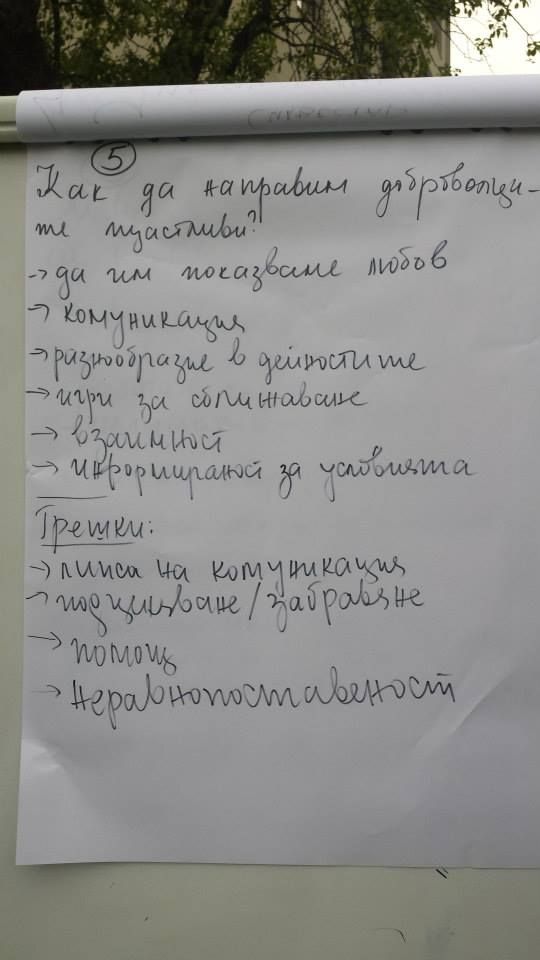 5
Как да направим доброволци-
те щастливи?
→ да им показваме любов
→ комуникация
→ разнообразие в дейностите
→ игри за сближаване
→ взаимност
→ информираност за условията
Грешки:
→ липса на комуникация
→ подценяване/забравяне
→ помощ
→ неравнопоставеност